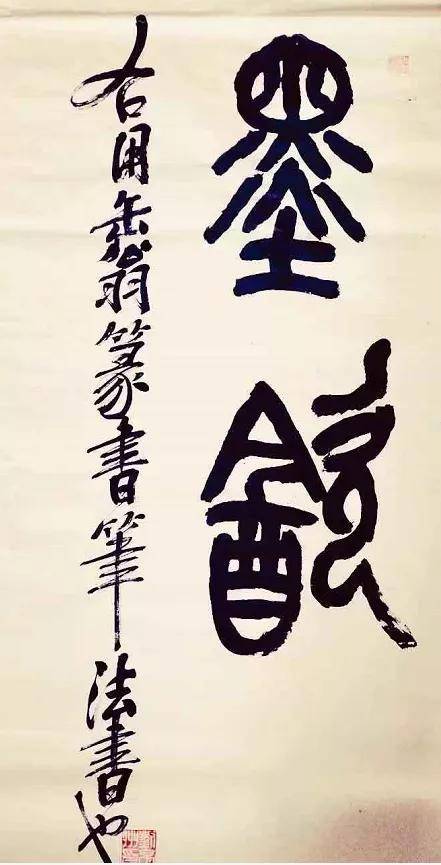 墨㱃
右用缶翁篆書筆法書也